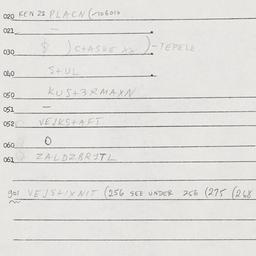 020 KEN 28 PLACN (~10601)
021 —
030 $ ) C+ASKE XX ) - TEPELE
040 S+UL
050 KUS+3RMAXN
051 —
052 VEJKS+AFT
060 O
061 ZALDZBRITL
901 VEJS+IXNIT (256 SEE UNDER 256 (275 (268